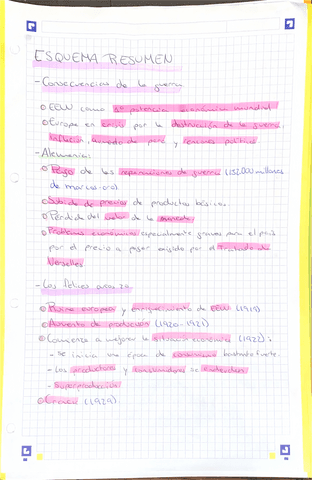 ESQUEMA RESUMEN
- Consecuencias de la guerra
EEUU como 1ª potencia económica mundial
Europa en crisis por la destrucción de la guerra,
inflación, aumento de paro y razones políticas
- Alemania:
Pago de las reparaciones de guerra (132000 millones
de marcos-oro).
Subida de precios de productos básicos.
Pérdida del valor de la moneda
Problemas económicos especialmente graves para el país
por el precio a pagar exigido por el Tratado de
Versalles
- Los felices años 20
Ruina europea y enriquecimiento de EEUU (1919)
Aumento de producción (1920-1921)
Comienza a mejorar la situación económica (1922):
- Se inicia una época de bastante fuerte.
- Los productores y consumidores se
- Superproducción
Crack (1929)